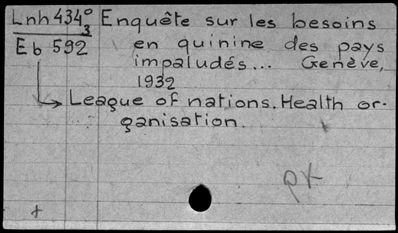 Lnh 434° Enquête sur les besoins
3
Eb 592 en quinine des pays
impaludés... Genève,
1932
League of nations. Health or-
ganisation.
pk